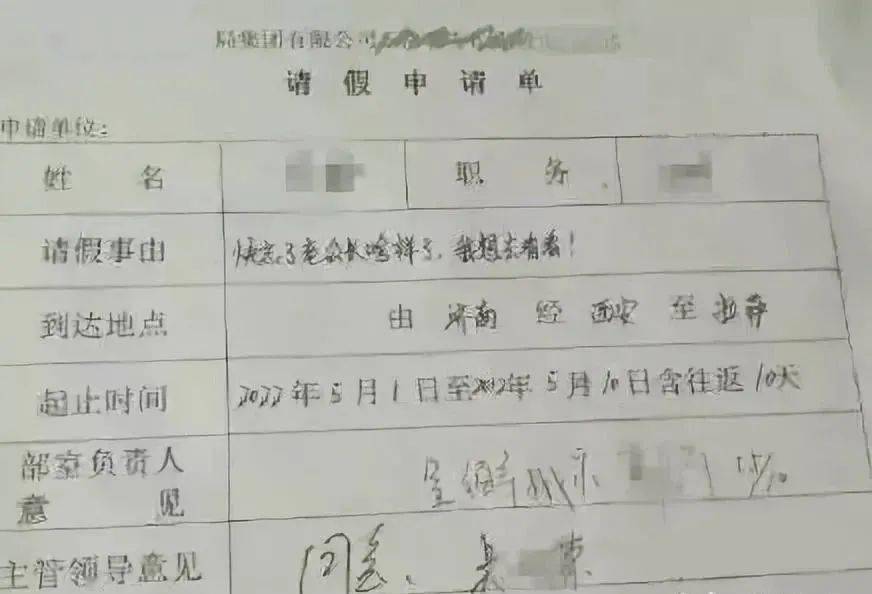 局集团有限公司
请假申请单
申请单位：
姓名 职务
请假事由 快忘了老公长啥样了，我想去看看！
到达地点 由 济南 经 西安 至 拉萨
起止时间 2022年5月1日至2022年5月10日含往返10天
部室负责人
意见
主管领导意见 同意、